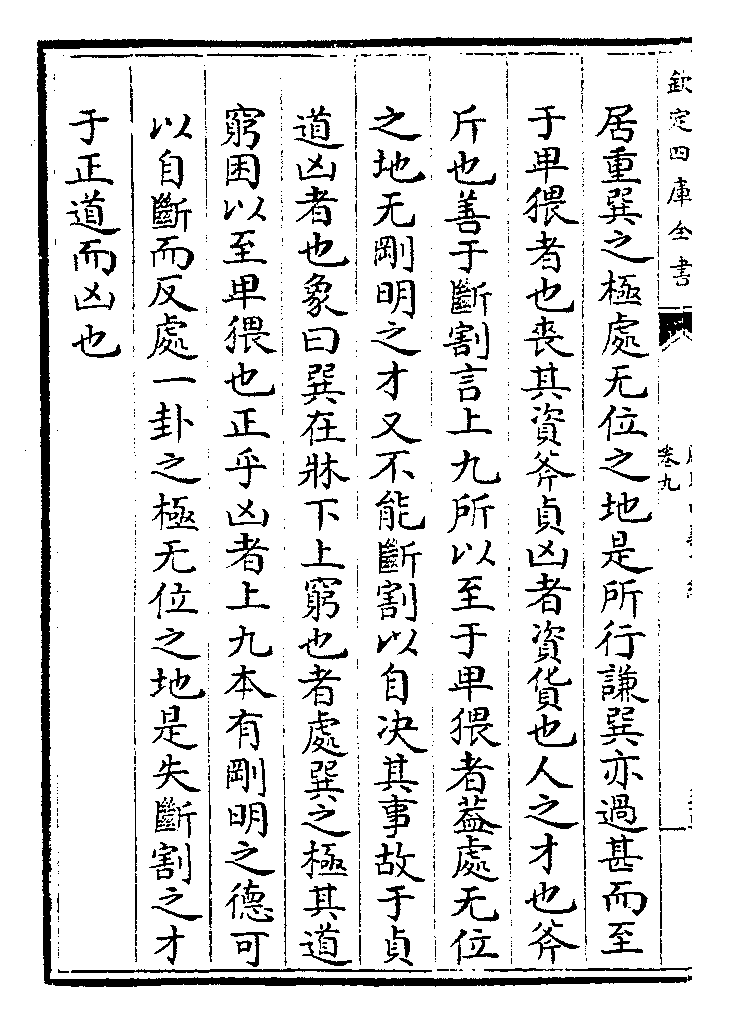 欽定四庫全書
卷九
居重巽之極處无位之地是所行謙巽亦過甚而至
于卑猥者也喪其資斧貞凶者資貨也人之才也斧
斤也善于斷割言上九所以至于卑猥者葢處无位
之地无剛明之才又不能斷割以自决其事故于貞
道凶者也象曰巽在牀下上窮也者處巽之極其道
窮困以至卑猥也正乎凶者上九本有剛明之德可
以自斷而反處一卦之極无位之地是失斷割之才
于正道而凶也